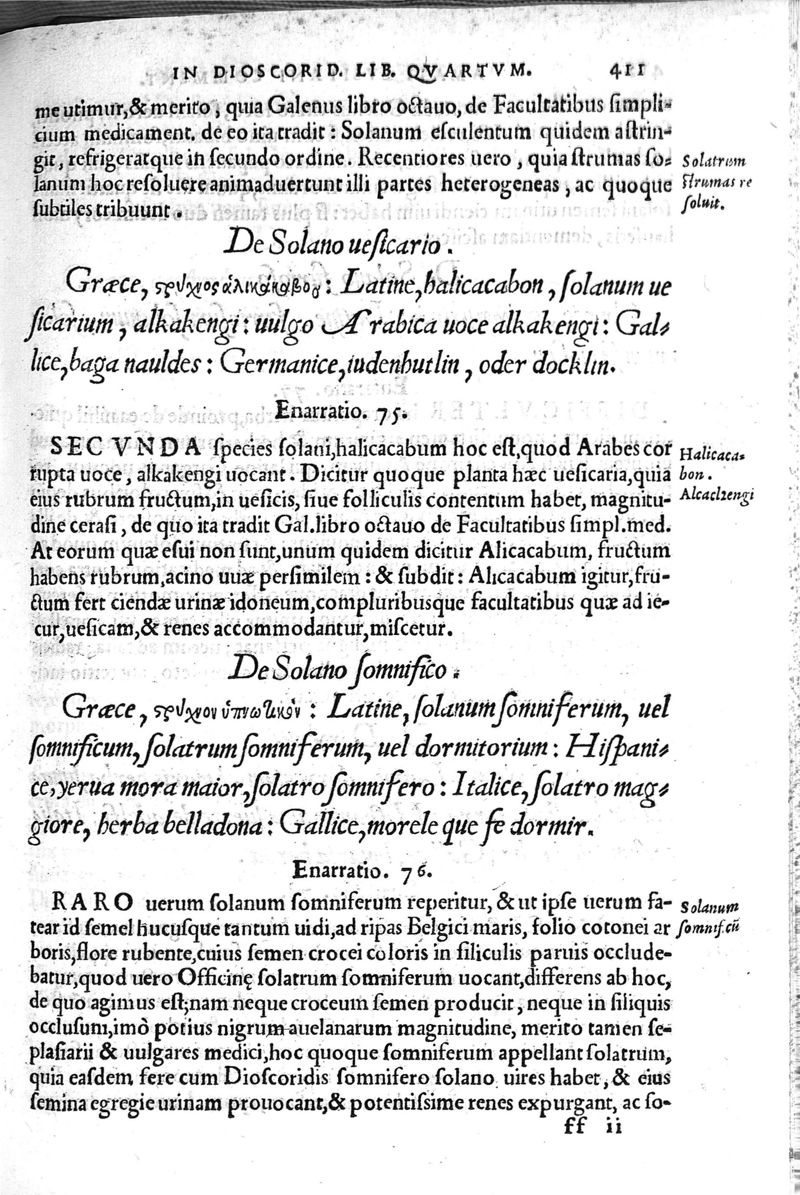 IN DIOSCORID. LIB. QVARTVM. 411
me utimur, & merito, quia Galenus libro octauo, de Facultatibus ſimpli-
cium medicament. de eo ita tradit: Solanum eſculentum quidem aſtrin-
git, refrigeratque in ſecundo ordine. Recentiores uero, quia ſtrumas ſo-
lanum hoc reſoluere animaduertunt illi partes heterogeneas, ac quoque
ſubtiles tribuunt.
Solatrum
ſtrumas re
ſoluit.
De Solano ueſicario.
Græce, στρύχνος ἁλικάκαβου: Latine, halicacabon, ſolanum ue
ſicarium, alkakengi: uulgo Arabica uoce alkakengi: Gal-
lice, baga nauldes: Germanice, iudenhutlin, oder docklin.
Enarratio. 75.
SECVNDA ſpecies ſolani, halicacabum hoc eſt, quod Arabes cor
rupta uoce, alkakengi uocant. Dicitur quoque planta hæc ueſicaria, quia
eius rubrum fructum, in ueſicis, ſiue folliculis contentum habet, magnitu-
dine ceraſi, de quo ita tradit Gal. libro octauo de Facultatibus ſimpl. med.
At eorum quæ eſui non ſunt, unum quidem dicitur Alicacabum, fructum
habens rubrum, acino uuæ perſimilem: & ſubdit: Alicacabum igitur, fru-
ctum fert ciendæ urinæ idoneum, compluribusque facultatibus quæ ad ie-
cur, ueſicam, & renes accommodantur, miſcetur.
Halicaca-
bon.
Alcachengi
De Solano ſomnifico.
Græce, στρύχνον ὑπνωτικόν: Latine, ſolanum ſomniferum, uel
ſomnificum, ſolatrum ſomniferum, uel dormitorium: Hiſpani-
ce, yerua mora maior, ſolatro ſomnifero: Italice, ſolatro mag-
giore, herba belladona: Gallice, morele que fe dormir.
Enarratio. 76.
RARO uerum ſolanum ſomniferum reperitur, & ut ipſe uerum fa-
tear id ſemel hucuſque tantum uidi, ad ripas Belgici maris, folio cotonei ar
boris, flore rubente, cuius ſemen crocei coloris in ſiliculis paruis occlude-
batur, quod uero Officinę ſolatrum ſomniferum uocant, differens ab hoc,
de quo agimus eſt; nam neque croceum ſemen producit, neque in ſiliquis
occluſum, imò potius nigrum auelanarum magnitudine, merito tamen ſe-
plaſiarii & uulgares medici, hoc quoque ſomniferum appellant ſolatrum,
quia eaſdem fere cum Dioſcoridis ſomnifero ſolano uires habet, & eius
ſemina egregie urinam prouocant, & potentiſſime renes expurgant, ac ſo-
Solanum
ſomnif.cū
ff ii